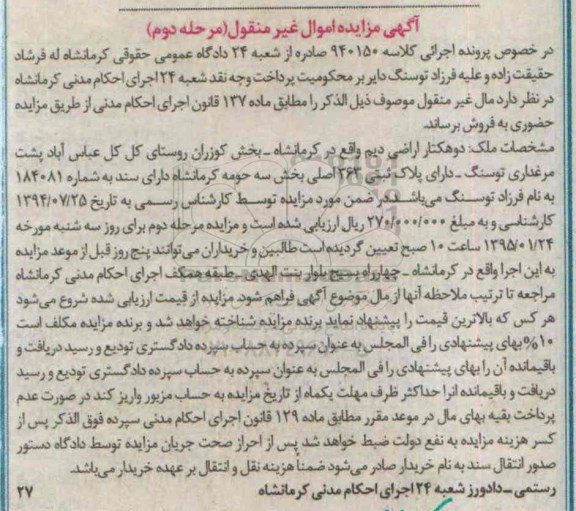 آگهی مزایده اموال غیر منقول(مرحله دوم)
در خصوص پرونده اجرائی کلاسه ۹۴۰۱۵۰ صادره از شعبه ۲۴ دادگاه عمومی حقوقی کرمانشاه له فرشاد
حقیقت زاده و علیه فرزاد توسنگ دایر بر محکومیت پرداخت وجه نقد شعبه ۲۴ اجرای احکام مدنی کرمانشاه
در نظر دارد مال غیر منقول موصوف ذیل الذکر را مطابق ماده ۱۳۷ قانون اجرای احکام مدنی از طریق مزایده
حضوری به فروش برساند.
مشخصات ملک: دو هکتار اراضی دیم واقع در کرمانشاه ـ بخش کوزران روستای کل کل عباس آباد پشت
مرغداری توسنگ ـ دارای پلاک ثبتی ۲۶۳ اصلی بخش سه حومه کرمانشاه دارای سند به شماره ۱۸۴۰۸۱
به نام فرزاد توسنگ می‌باشد در ضمن مورد مزایده توسط کارشناس رسمی به تاریخ ۱۳۹۴/۰۷/۲۵
کارشناسی و به مبلغ ۲۷۰/۰۰۰/۰۰۰ ریال ارزیابی شده است و مزایده مرحله دوم برای روز سه شنبه مورخه
۱۳۹۵/۰۱/۲۴ ساعت ۱۰ صبح تعیین گردیده است طالبین و خریداران می‌توانند پنج روز قبل از موعد مزایده
به این اجرا واقع در کرمانشاه ـ چهارراه بسیج بلوار بنت الهدی ـ طبقه همکف اجرای احکام مدنی کرمانشاه
مراجعه تا ترتیب ملاحظه آنها از مال موضوع آگهی فراهم شود مزایده از قیمت ارزیابی شده شروع می‌شود
هر کس که بالاترین قیمت را پیشنهاد نماید برنده مزایده شناخته خواهد شد و برنده مزایده مکلف است
۱۰% بهای پیشنهادی را فی المجلس به عنوان سپرده به حساب سپرده دادگستری تودیع و رسید دریافت و
باقیمانده آن را بهای پیشنهادی را فی المجلس به عنوان سپرده به حساب سپرده دادگستری تودیع و رسید
دریافت و باقیمانده انرا حداکثر ظرف مهلت یکماه از تاریخ مزایده به حساب مزبور واریز کند در صورت عدم
پرداخت بقیه بهای مال در موعد مقرر مطابق ماده ۱۲۹ قانون اجرای احکام مدنی سپرده فوق الذکر پس از
کسر هزینه مزایده به نفع دولت ضبط خواهد شد پس از احراز صحت جریان مزایده توسط دادگاه دستور
صدور انتقال سند به نام خریدار صادر می‌شود ضمناً هزینه نقل و انتقال بر عهده خریدار می‌باشد.
رستمی ـ دادورز شعبه ۲۴ اجرای احکام مدنی کرمانشاه ۲۷